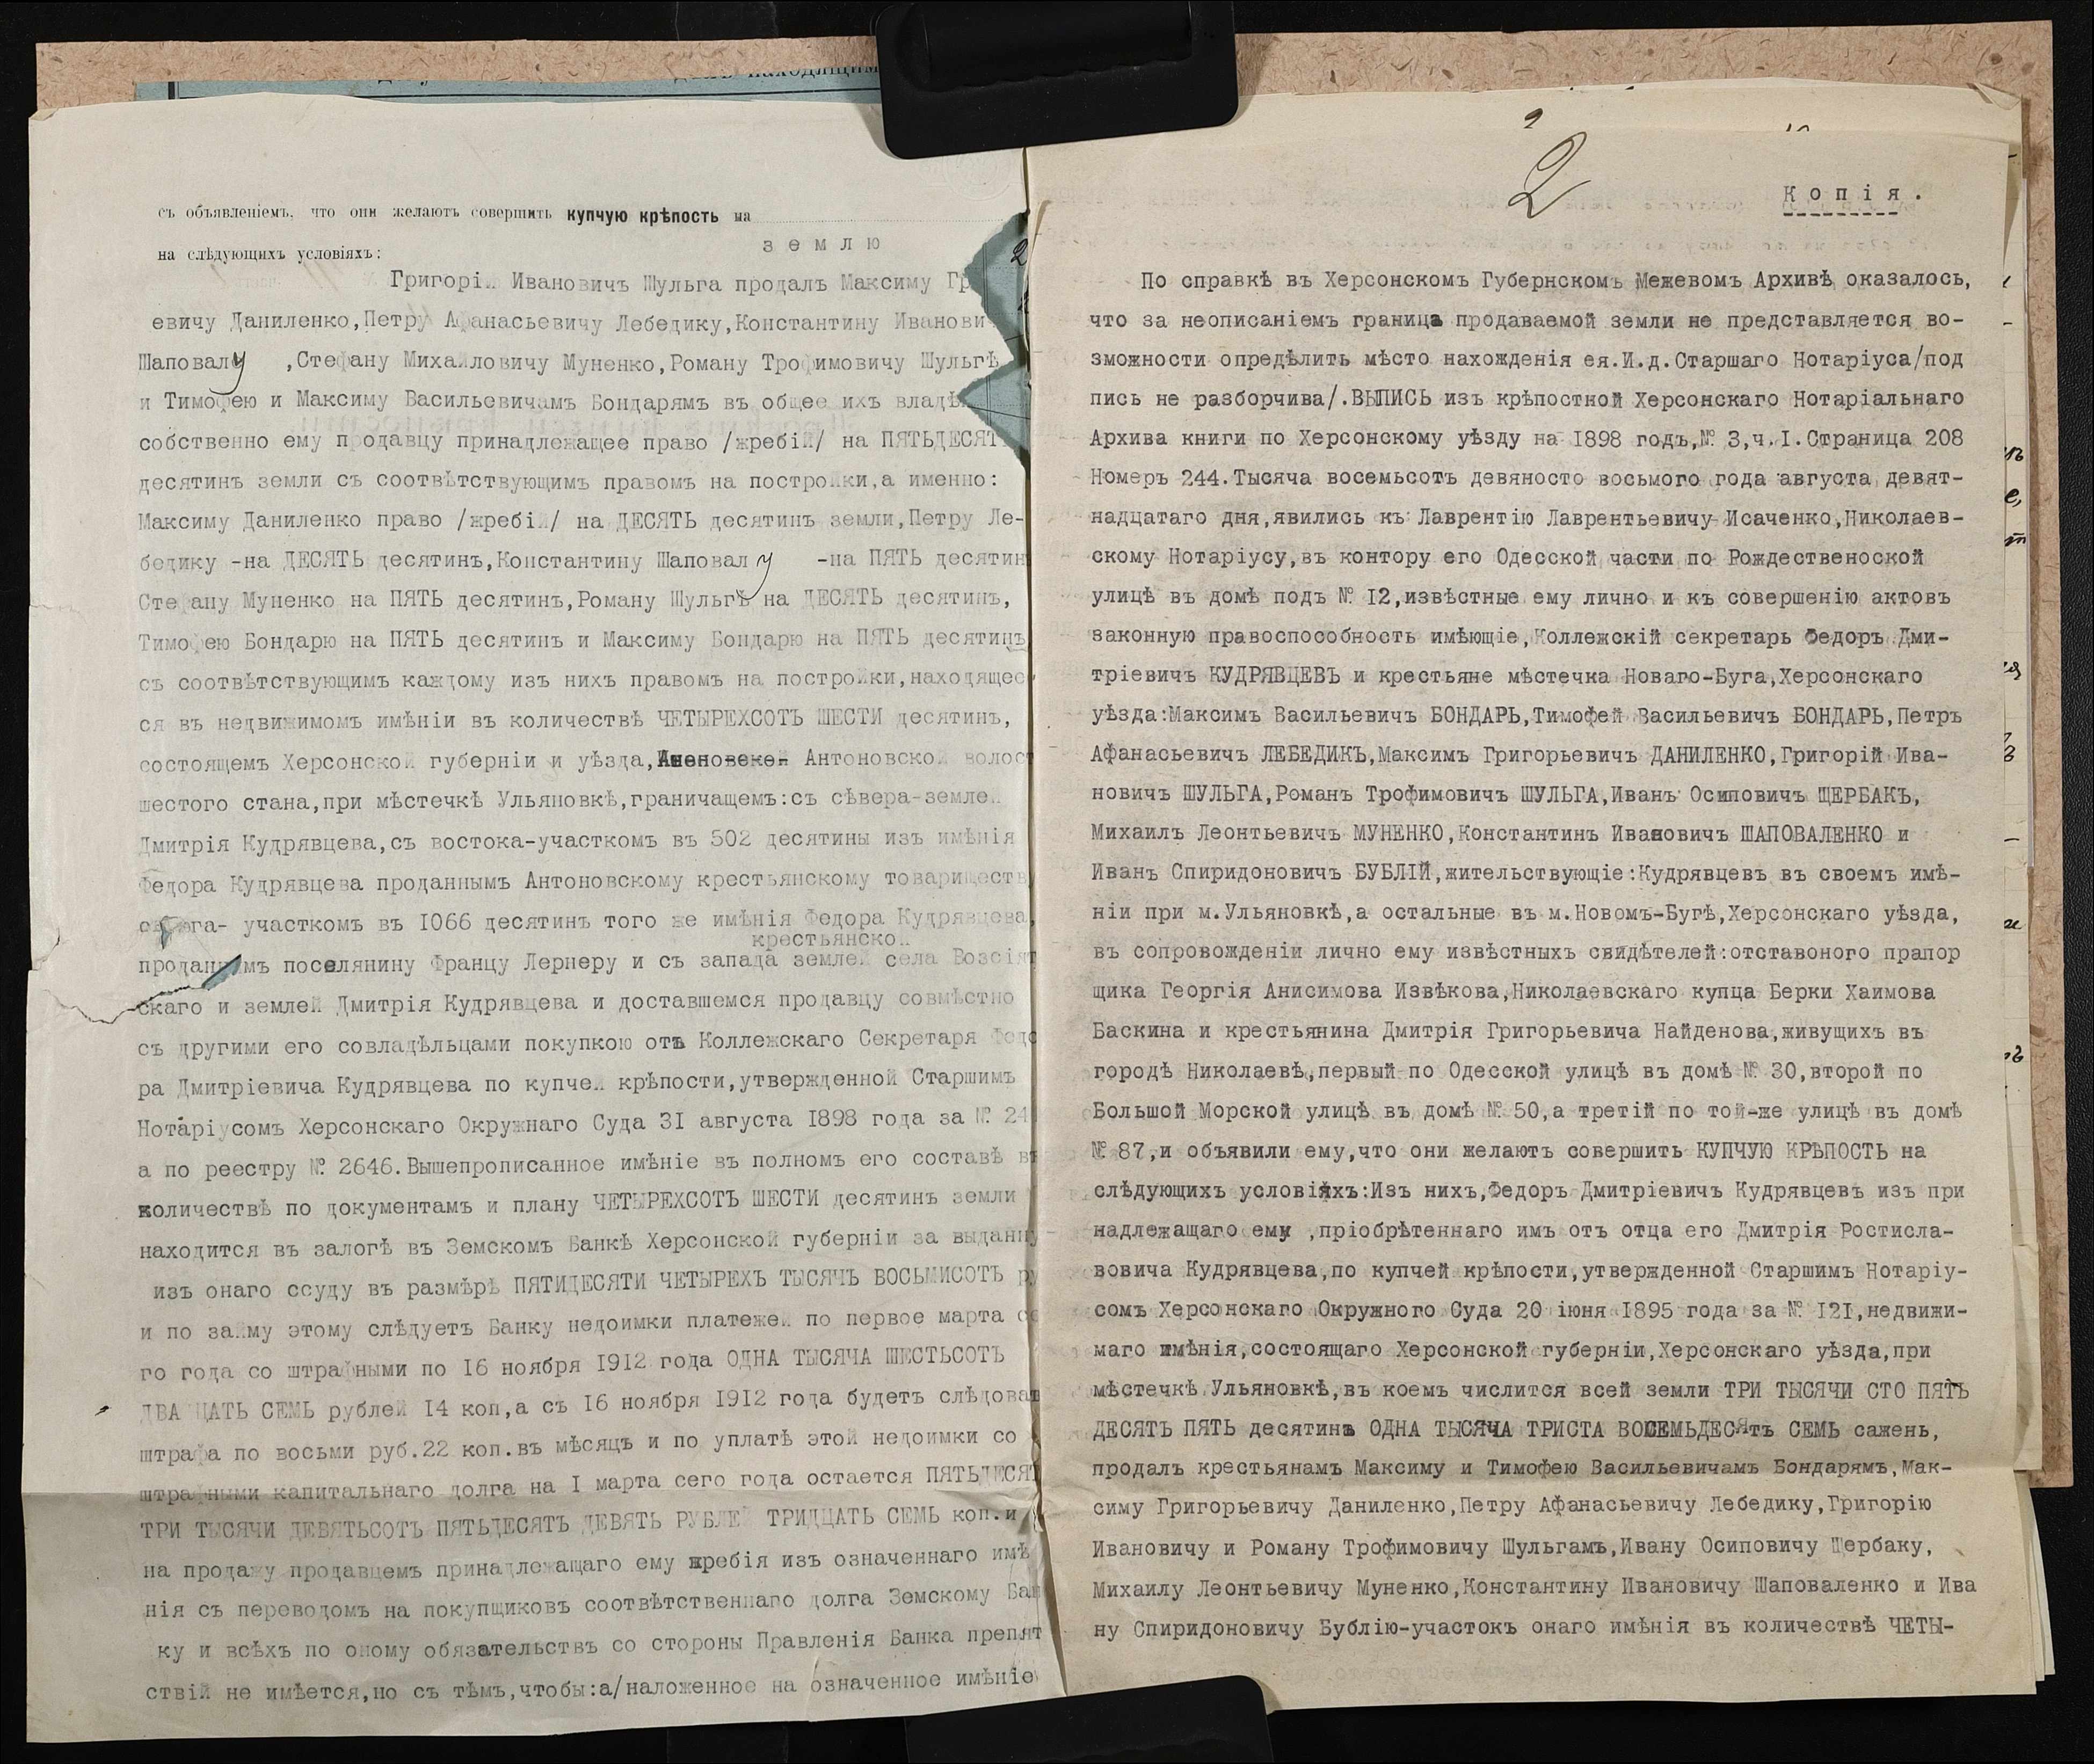 съ объявленіемъ, что они желаютъ совершить купчую крѣпость на
землю
на слѣдующихъ условіяхъ:
Григорій Ивановичъ Шульга продалъ Максиму Гр
евичу Даниленко,Петру Афанасьевичу Лебедику,Константину Иванови
Шаповалу ,Стефану Михайловичу Муненко,Роману Трофимовичу Шульгѣ
и Тимофею и Максиму Васильевичамъ Бондарямъ въ общее ихъ владѣ
собственно ему продавцу принадлежащее право /жребій/ на ПЯТЬДЕСЯТ
десятинъ земли съ соотвѣтствующимъ правомъ на постройки,а именно:
Максиму Даниленко право /жребій/ на ДЕСЯТЬ десятинъ земли,Петру Ле-
бедику -на ДЕСЯТЬ десятинъ,Константину Шаповалу -на ПЯТЬ десятин
Стефану Муненко на ПЯТЬ десятинъ,Роману Шульгѣ на ДЕСЯТЬ десятинъ,
Тимофею Бондарю на ПЯТЬ десятинъ и Максиму Бондарю на ПЯТЬ десятинъ
съ соотвѣтствующимъ каждому изъ нихъ правомъ на постройки,находящее
ся въ недвижимомъ имѣніи въ количествѣ ЧЕТЫРЕХСОТЪ ШЕСТИ десятинъ,
состоящемъ Херсонской губерніи и уѣзда, Антоновской волост
шестого стана,при мѣстечкѣ Ульяновкѣ,граничащемъ:съ сѣвера-землей
Дмитрія Кудрявцева,съ востока-участкомъ въ 502 десятины изъ имѣнія
Федора Кудрявцева проданнымъ Антоновскому крестьянскому товариществу
съ юга- участкомъ въ 1066 десятинъ того же имѣнія Федора Кудрявцева,
крестьянской
проданнымъ поселянину Францу Лернеру и съ запада землей села Возсіят
скаго и землей Дмитрія Кудрявцева и доставшемся продавцу совмѣстно
съ другими его совладѣльцами покупкою отъ Коллежскаго Секретаря Федо
ра Дмитріевича Кудрявцева по купчей крѣпости,утвержденной Старшимъ
Нотаріусомъ Херсонскаго Окружнаго Суда 31 августа 1898 года за № 24
а по реестру № 2646.Вышепрописанное имѣніе въ полномъ его составѣ въ
количествѣ по документамъ и плану ЧЕТЫРЕХСОТЪ ШЕСТИ десятинъ земли
находится въ залогѣ въ Земскомъ Банкѣ Херсонской губерніи за выданну
изъ онаго ссуду въ размѣрѣ ПЯТИДЕСЯТИ ЧЕТЫРЕХЪ ТЫСЯЧЪ ВОСЬМИСОТЪ ру
и по займу этому слѣдуетъ Банку недоимки платежей по первое марта се
го года со штрафными по 16 ноября 1912 года ОДНА ТЫСЯЧА ШЕСТЬСОТЪ
ДВАДЦАТЬ СЕМЬ рублей 14 коп,а съ 16 ноября 1912 года будетъ слѣдоват
штрафа по восьми руб.22 коп.въ мѣсяцъ и по уплатѣ этой недоимки со
штрафными капитальнаго долга на 1 марта сего года остается ПЯТЬДЕСЯТ
ТРИ ТЫСЯЧИ ДЕВЯТЬСОТЪ ПЯТЬДЕСЯТЪ ДЕВЯТЬ РУБЛЕЙ ТРИДЦАТЬ СЕМЬ коп.и
на продажу продавцемъ принадлежащаго ему жребія изъ означеннаго имѣ
нія съ переводомъ на покупщиковъ соотвѣтственнаго долга Земскому Бан
ку и всѣхъ по оному обязательствъ со стороны Правленія Банка препят
ствій не имѣется,но съ тѣмъ,чтобы:а/наложенное на означенное имѣніе
2
Копія.
По справкѣ въ Херсонскомъ Губернскомъ Межевомъ Архивѣ оказалось,
что за неописаніемъ границъ продаваемой земли не представляется во-
зможности опредѣлить мѣсто нахожденія ея.И.д.Старшаго Нотаріуса/под
пись не разборчива/.ВЫПИСЬ изъ крѣпостной Херсонскаго Нотаріальнаго
Архива книги по Херсонскому уѣзду на 1898 годъ,№ 3,ч.I.Страница 208
Номеръ 244.Тысяча восемьсотъ девяносто восьмого года августа девят-
надцатаго дня,явились къ Лаврентію Лаврентьевичу Исаченко,Николаев-
скому Нотаріусу,въ контору его Одесской части по Рождественоской
улицѣ въ домѣ подъ № 12,извѣстные ему лично и къ совершенію актовъ
законную правоспособность имѣющіе,Коллежскій секретарь Федоръ Дми-
тріевичъ КУДРЯВЦЕВЪ и крестьяне мѣстечка Новаго-Буга,Херсонскаго
уѣзда:Максимъ Васильевичъ БОНДАРЬ,Тимофей Васильевичъ БОНДАРЬ,Петръ
Афанасьевичъ ЛЕБЕДИКЪ,Максимъ Григорьевичъ ДАНИЛЕНКО,Григорій Ива-
новичъ ШУЛЬГА,Романъ Трофимовичъ ШУЛЬГА,Иванъ Осиповичъ ЩЕРБАКЪ,
Михаилъ Леонтьевичъ МУНЕНКО,Константинъ Ивановичъ ШАПОВАЛЕНКО и
Иванъ Спиридоновичъ БУБЛІЙ,жительствующіе:Кудрявцевъ въ своемъ имѣ-
ніи при м.Ульяновкѣ,а остальные въ м.Новомъ-Бугѣ,Херсонскаго уѣзда,
въ сопровожденіи лично ему извѣстныхъ свидѣтелей:отставоного прапор
щика Георгія Анисимова Извѣкова,Николаевскаго купца Берки Хаимова
Баскина и крестьянина Дмитрія Григорьевича Найденова,живущихъ въ
городѣ Николаевѣ,первый по Одесской улицѣ въ домѣ № 30,второй по
Большой Морской улицѣ въ домѣ № 50,а третій по той-же улицѣ въ домѣ
№ 87,и объявили ему,что они желаютъ совершить КУПЧУЮ КРѢПОСТЬ на
слѣдующихъ условіяхъ:Изъ нихъ,Федоръ Дмитріевичъ Кудрявцевъ изъ при
надлежащаго ему ,пріобрѣтеннаго имъ отъ отца его Дмитрія Ростисла-
вовича Кудрявцева,по купчей крѣпости,утвержденной Старшимъ Нотаріу-
сомъ Херсонскаго Окружного Суда 20 іюня 1895 года за № 121,недвижи-
маго имѣнія,состоящаго Херсонской губерніи,Херсонскаго уѣзда,при
мѣстечкѣ Ульяновкѣ,въ коемъ числится всей земли ТРИ ТЫСЯЧИ СТО ПЯТЬ
ДЕСЯТЬ ПЯТЬ десятинъ ОДНА ТЫСЯЧА ТРИСТА ВОСЕМЬДЕСЯтъ СЕМЬ сажень,
продалъ крестьянамъ Максиму и Тимофею Васильевичамъ Бондарямъ,Мак-
симу Григорьевичу Даниленко,Петру Афанасьевичу Лебедику,Григорію
Ивановичу и Роману Трофимовичу Шульгамъ,Ивану Осиповичу Щербаку,
Михаилу Леонтьевичу Муненко,Константину Ивановичу Шаповаленко и Ива
ну Спиридоновичу Бублію-участокъ онаго имѣнія въ количествѣ ЧЕТЫ-